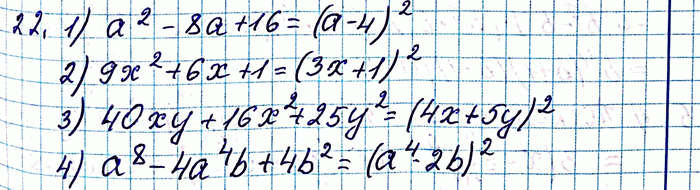 22. 1) a² - 8a + 16 = (a - 4)²
2) 9x² + 6x + 1 = (3x + 1)²
3) 40xy + 16x² + 25y² = (4x + 5y)²
4) a⁸ - 4a⁴b + 4b² = (a⁴ - 2b)²